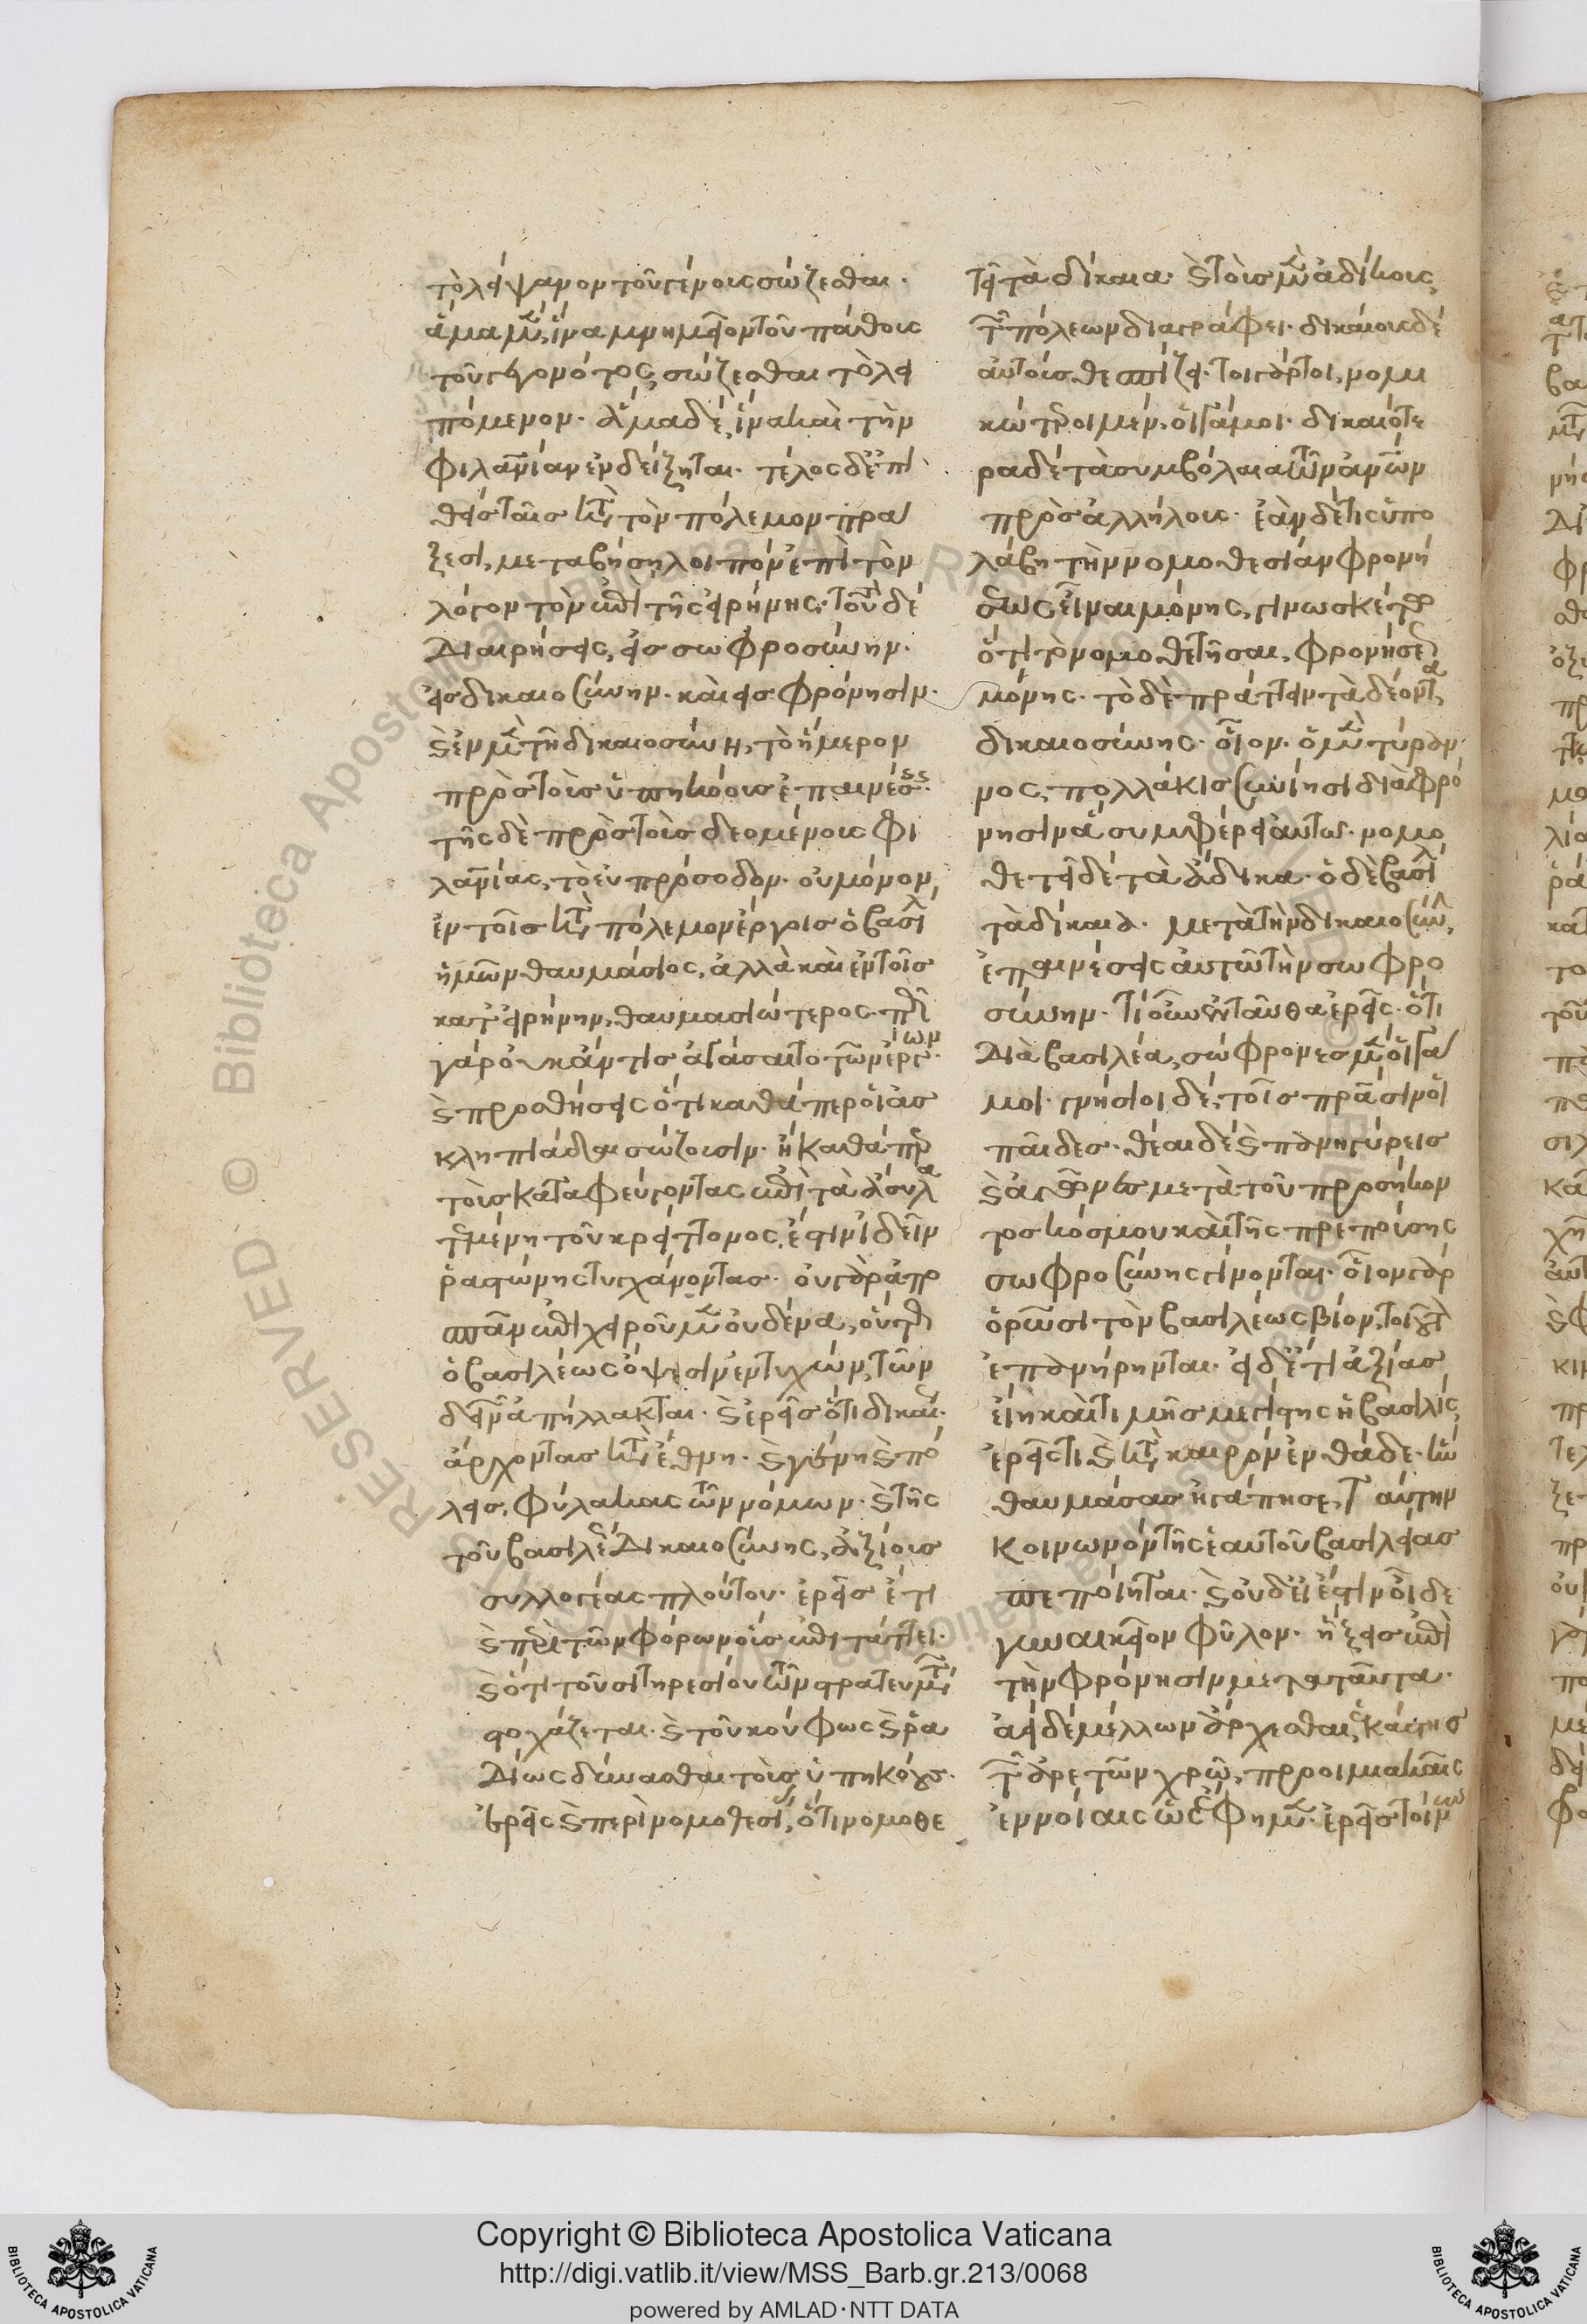 τὸ λείψανον τοῦ γένους σώζεσθαι.
ἅμα μὲν, ἵνα μνημεῖον τοῦ πάθους
τοῦ γεγονότος, σώζεσθαι τὸ λει
πόμενον. ἅμα δὲ, ἵνα καὶ τὴν
φιλανθρωπίαν ἐνδείξηται. τέλος δὲ ἐπι
θεὶς ταῖς κατὰ τὸν πόλεμον πρά
ξεσι, μεταβήσῃ λοιπὸν ἐπὶ τὸν
λόγον τὸν ἐπὶ τῆς εἰρήνης. τοῦτον δὲ
διαιρήσεις, εἰς σωφροσύνην.
εἰς δικαιοσύνην. καὶ εἰς φρόνησιν.
καὶ ἐν μὲν τῆ δικαιοσύνη, τὸ ἥμερον
πρὸς τοὺς ὑπηκόους ἐπαινέσεις.
τῆς δὲ πρὸς τοὺς δεομένους φι
λανθρωπίας, τὸ εὐπρόσοδον. οὐ μόνον
ἐν τοῖς κατὰ πόλεμον ἔργοις ὁ βασιλεὺς
ἡμῶν θαυμάσιος, ἀλλὰ καὶ ἐν τοῖς
κατ' εἰρήνην, θαυμασιώτερος.
γὰρ οὐκ ἄν τις ἀγάσαιτο τῶν ἔργων.
καὶ προσθήσεις ὅτι καθάπερ οἱ ἀσ
κληπιάδαι σώζουσιν. ἢ καθάπερ
τοὺς καταφεύγοντας ἐπὶ τὰ ἄσυλα
τεμένη τοῦ κρείττονος, ἔστιν ἰδεῖν
ῥαστώνης τυγχάνοντας. οὐ γὰρ ἀπο
σπᾶν ἐπιχειροῦμεν οὐδένα, οὕτως
ὁ βασιλέως ὄψεσιν ἐντυχὼν, τῶν
δεινῶν ἀπήλλακται. καὶ ἐρεῖς ὅτι δικαίους
ἄρχοντας κατὰ ἔθνη. καὶ γένη καὶ πό
λεις, φύλακας τῶν νόμων. καὶ τῆς
τοῦ βασιλέως δικαιοσύνης, ἀξίους
συλλογέας πλούτου. ἐρεῖς ἔτι
καὶ περὶ τῶν φόρων οὓς ἐπιτάττει.
καὶ ὅτι τοῦ σιτηρεσίου τῶν στρατευμάτων
στοχάζεται. καὶ τοῦ κούφως καὶ ῥα
δίως δύνασθαι τοὺς ὑπηκόους.
ἐρεῖς καὶ περὶ νομοθεσίας, ὅτι νομοθε
τεῖ τὰ δίκαια. καὶ τοὺς μὲν ἀδίκους,
τῶν πόλεων διαγράφει. δικαίους δὲ
αὐτοὺς θεσπίζει. τοιγάρτοι, νομι
κώτεροι μὲν, οἱ γάμοι. δικαιότε
ρα δὲ τὰ συμβόλαια τῶν ἀνθρώπων
πρὸς ἀλλήλους. ἐὰν δέ τις ὑπο
λάβη τὴν νομοθεσίαν φρονή
σεως εἶναι μόνης, γινωσκέτω
ὅτι τὸ νομοθετῆσαι, φρονήσεως
μόνης. τὸ δὲ πράττειν τὰ δέοντα,
δικαιοσύνης. οἷον. ὁ μὲν τύραν
νος, πολλάκις συνίησι διὰ φρό
νησιν ἃ συμφέρει αὐτῶ. νομο
θετεῖ δὲ τὰ ἄδικα. ὁ δὲ βασιλεὺς
τὰ δίκαια. μετὰ τὴν δικαιοσύνην,
ἐπαινέσεις αὐτοῦ τὴν σωφρο
σύνην. τί οὖν ἐνταῦθα ἐρεῖς. ὅτι
διὰ βασιλέα, σώφρονες μὲν οἱ γά
μοι. γνήσιοι δὲ, τοῖς πατράσιν οἱ
παῖδες. θέαι δὲ καὶ πανηγύρεις
καὶ ἀγῶνες μετὰ τοῦ προσήκον
τος κόσμου καὶ τῆς πρεπούσης
σωφροσύνης γίνονται. οἷον γὰρ
ὁρῶσι τὸν βασιλέως βίον, τοιοῦτον
ἐπανήρηνται. εἰ δὲ ἐπ' ἀξίας
εἴη καὶ τιμῆς μεγίστης ἡ βασιλὶς,
ἐρεῖς τι καὶ κατὰ καιρὸν ἐνθάδε. ἣν
θαυμάσας ἠγάπησε, ταύτην
κοινωνὸν τῆς ἑαυτοῦ βασιλείας
πεποίηται. καὶ οὐδὲ εἰ ἔστιν οἶδε
γυναικεῖον φῦλον. ἥξεις ἐπὶ
τὴν φρόνησιν μετὰ ταῦτα.
ἀεὶ δὲ μέλλων ἄρχεσθαι ἑκάστης
τῶν ἀρετῶν χρῶ, προοιμιακαῖς
ἐννοίαις ὡς ἔφημεν. ἐρεῖς τοίνυν